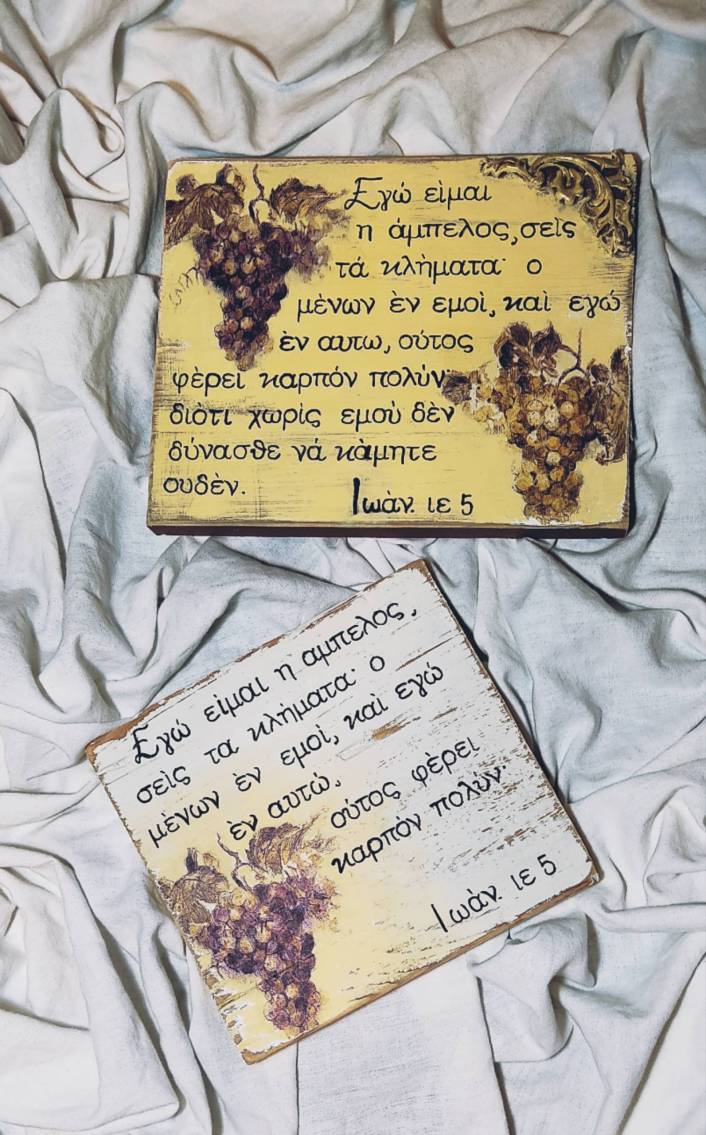 Εγώ εὶμαι
η άμπελος, σεὶς
τά κλὴματα· ο
μὲνων ὲν εμοὶ, καὶ εγώ
ὲν αυτω, ούτος
φὲρει καρπόν πολύν·
διὸτι χωρὶς εμοὺ δὲν
δύνασθε νά κὰμητε
ουδὲν.
Ιωὰν. ιε 5
Εγώ εὶμαι η αμπελος,
σεὶς τα κλὴματα· ο
μὲνων ὲν εμοὶ, καὶ εγώ
ὲν αυτώ.
ούτος φὲρει
καρπὸν πολύν·
Ιωὰν. ιε 5